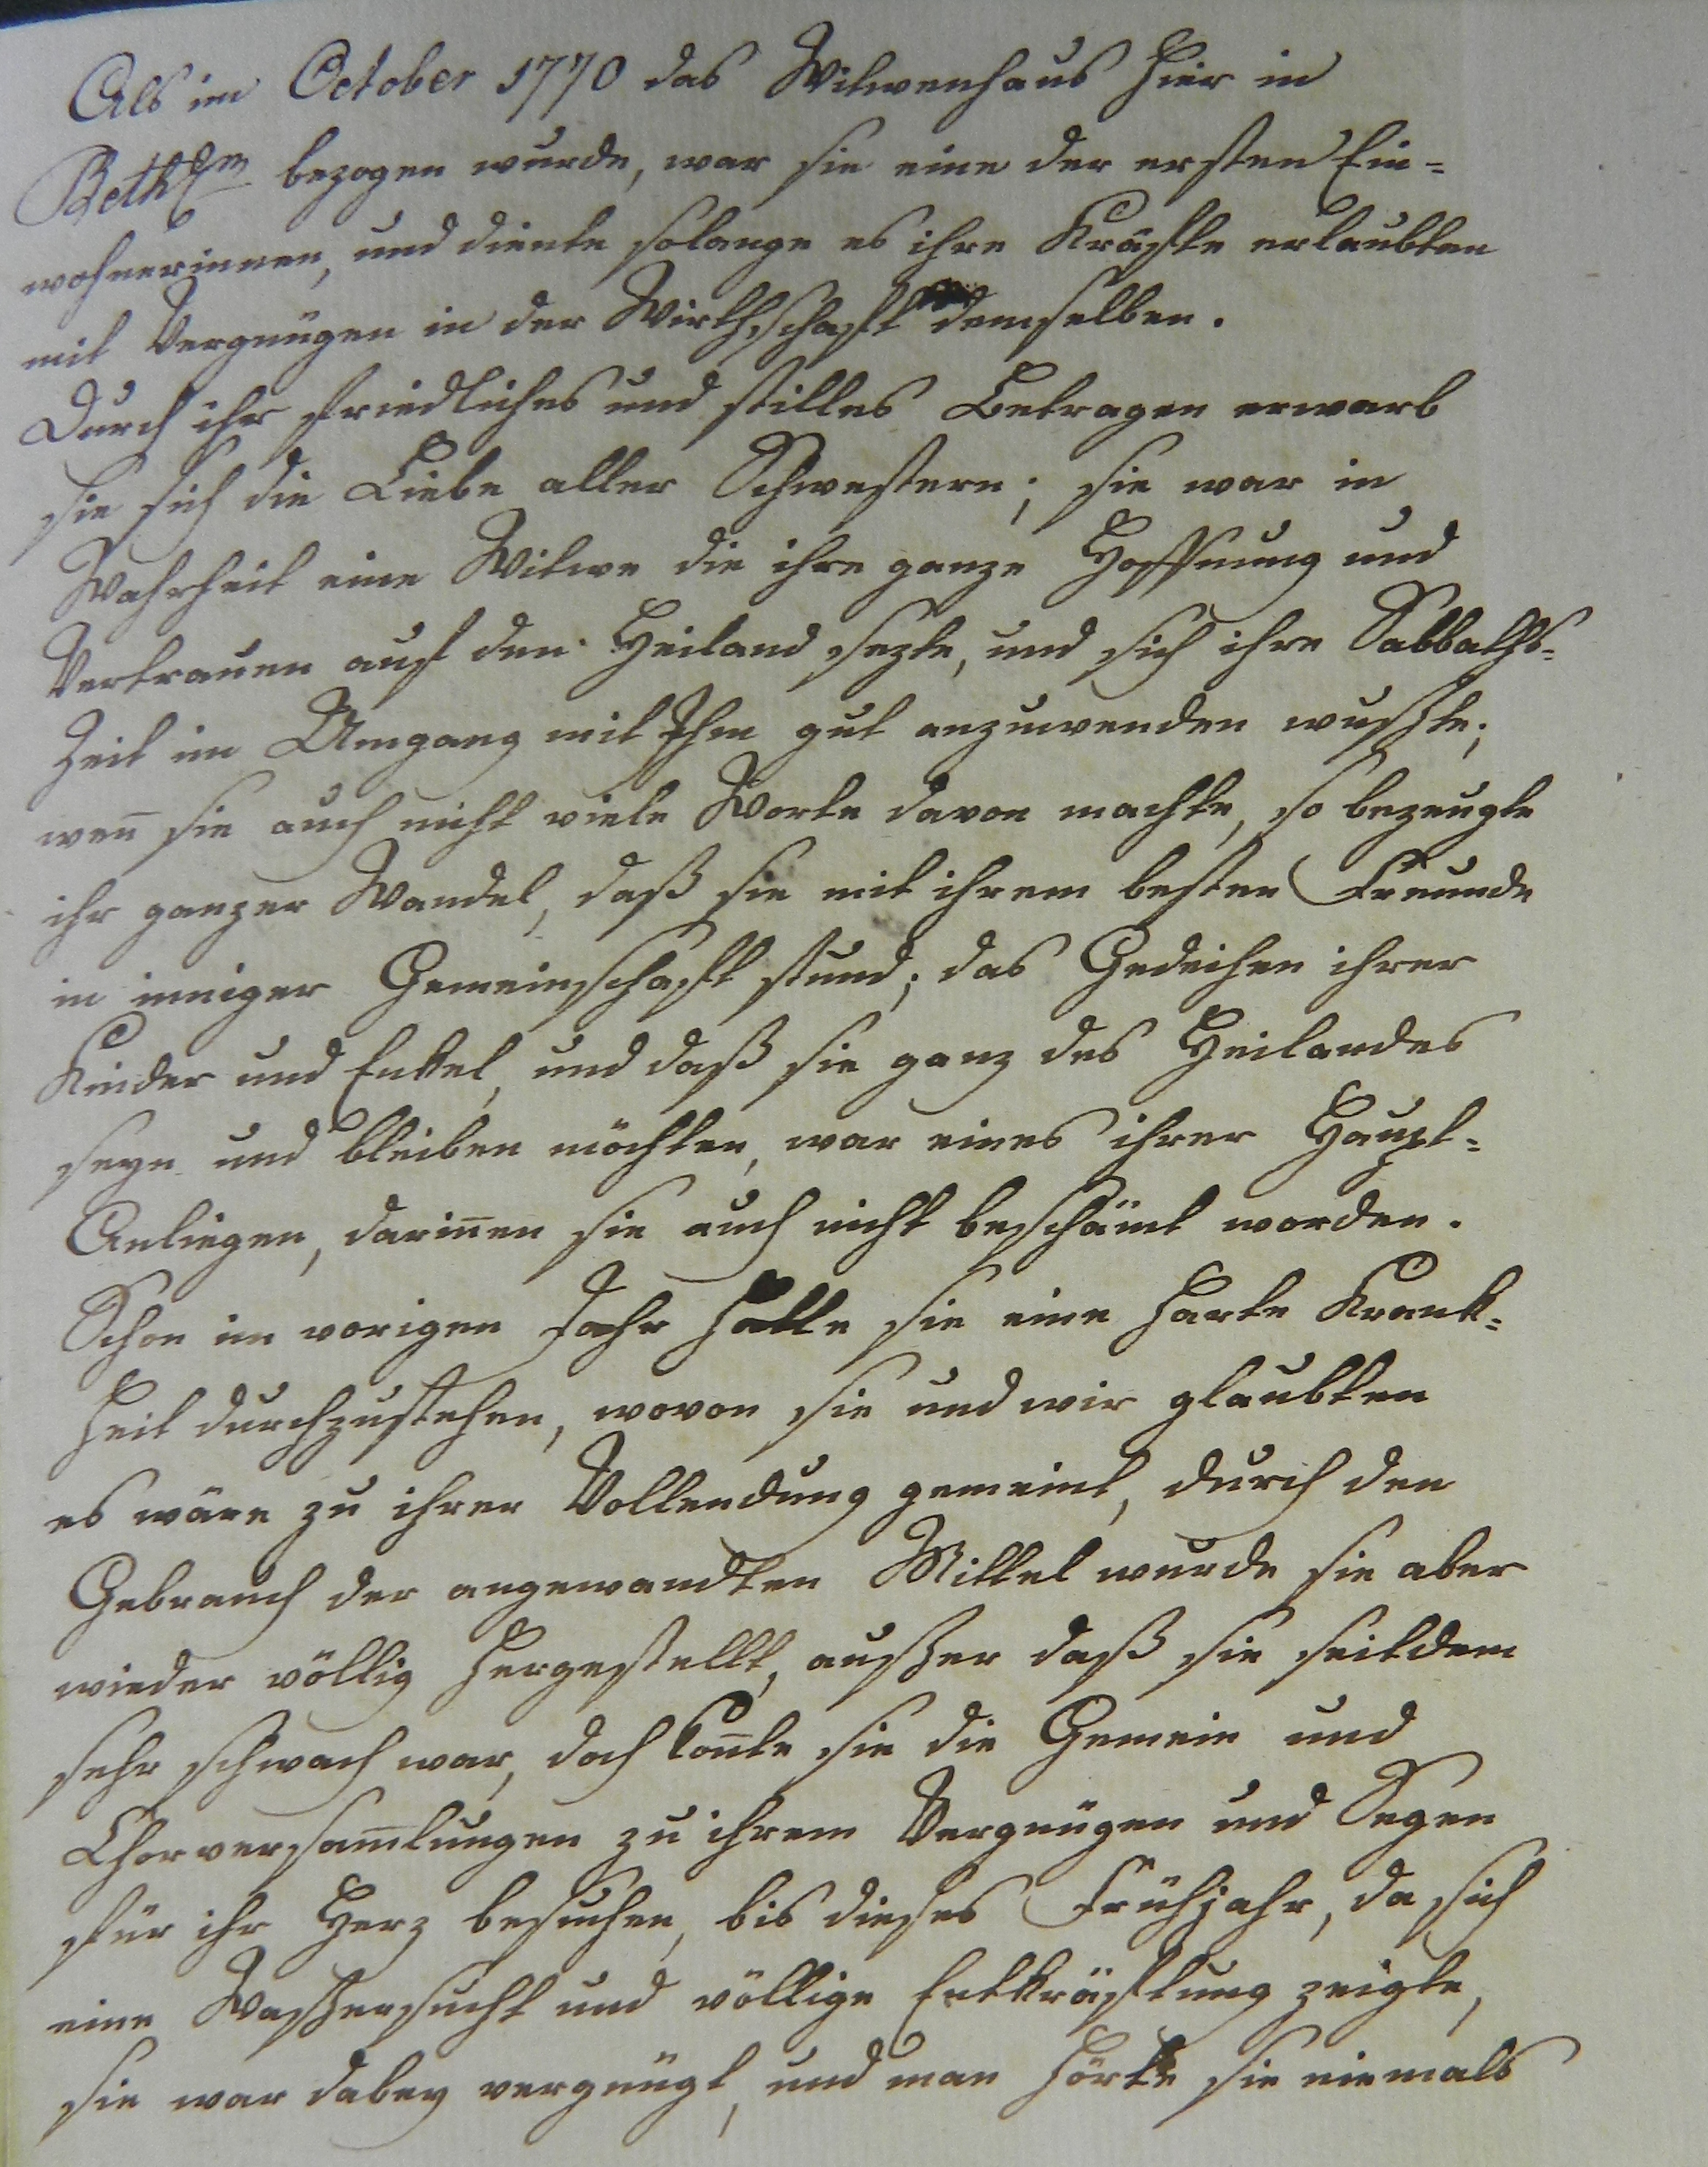 Als im October 1770 das Witwenhaus hier in
Bethlm bezogen wurde, war sie eine der ersten Ein=
wohnerinnen, und diente solange es ihre Kräfte erlaubten
mit Vergnügen in der Wirthschaft demselben.
Durch ihr friedliches und stilles Betragen erwarb
sie sich die Liebe aller Schwestern; sie war in
Wahrheit eine Witwe die ihre ganze Hoffnung und
Vertrauen auf den Heiland sezte, und sich ihre Sabbaths=
Zeit im Umgang mit Ihm gut anzuwenden wußte;
weñ sie auch nicht viele Worte davon machte, so bezeugte
ihr ganzer Wandel, daß sie mit ihrem besten Freunde
in inniger Gemeinschaft stund; das Gedeihen ihrer
Kinder und Enkel, und daß sie ganz des Heilandes
seyn und bleiben möchten, war eines ihrer Haupt=
Anliegen, dariñen sie auch nicht beschämt worden.
Schon im vorigen Jahr hatte sie eine harte Krank=
heit durchzustehen, wovon sie und wir glaubten
es wäre zu ihrer Vollendung gemeint, durch den
Gebrauch der angewandten Mittel wurde sie aber
wieder völlig hergestellt, außer daß sie seitdem
sehr schwach war, doch koñte sie die Gemein und
Chorversam̄lungen zu ihrem Vergnügen und Segen
für ihr Herz besuchen, bis dieses Frühjahr, da sich
eine Waßersucht und völlige Entkräftung zeigte,
sie war dabey vergnügt, und man hörte sie niemals